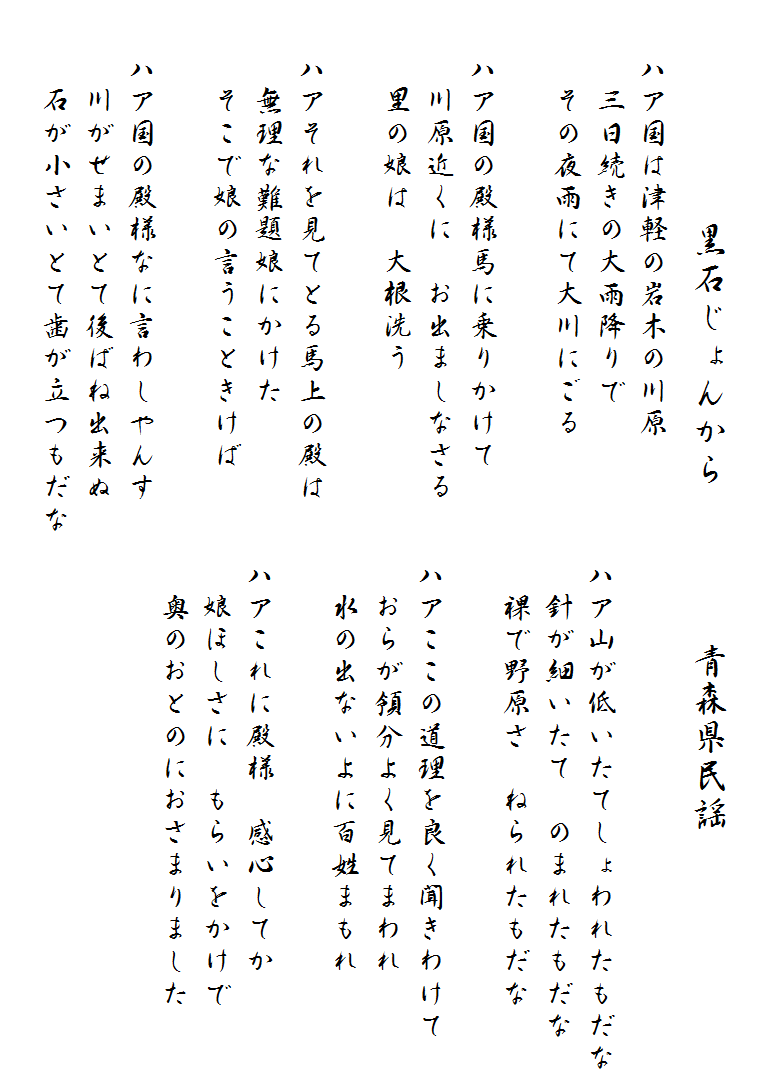 黒石じょんから
青森県民謡
ハア国は津軽の岩木の川原
三日続きの大雨降りで
その夜雨にて大川にごる
ハア国の殿様馬に乗りかけて
川原近くに　お出ましなさる
里の娘は　大根洗う
ハアそれを見てとる馬上の殿は
無理な難題娘にかけた
そこで娘の言うこときけば
ハア国の殿様なに言わしやんす
川がせまいとて後ばね出来ぬ
石が小さいとて歯が立つもだな
ハア山が低いたてしょわれたもだな
針が細いたて　のまれたもだな
裸で野原さ　ねられたもだな
ハアここの道理を良く聞きわけて
おらが領分よく見てまわれ
水の出ないよに百姓まもれ
ハアこれに殿様　感心してか
娘ほしさに　もらいをかけで
奥のおとのにおさまりました